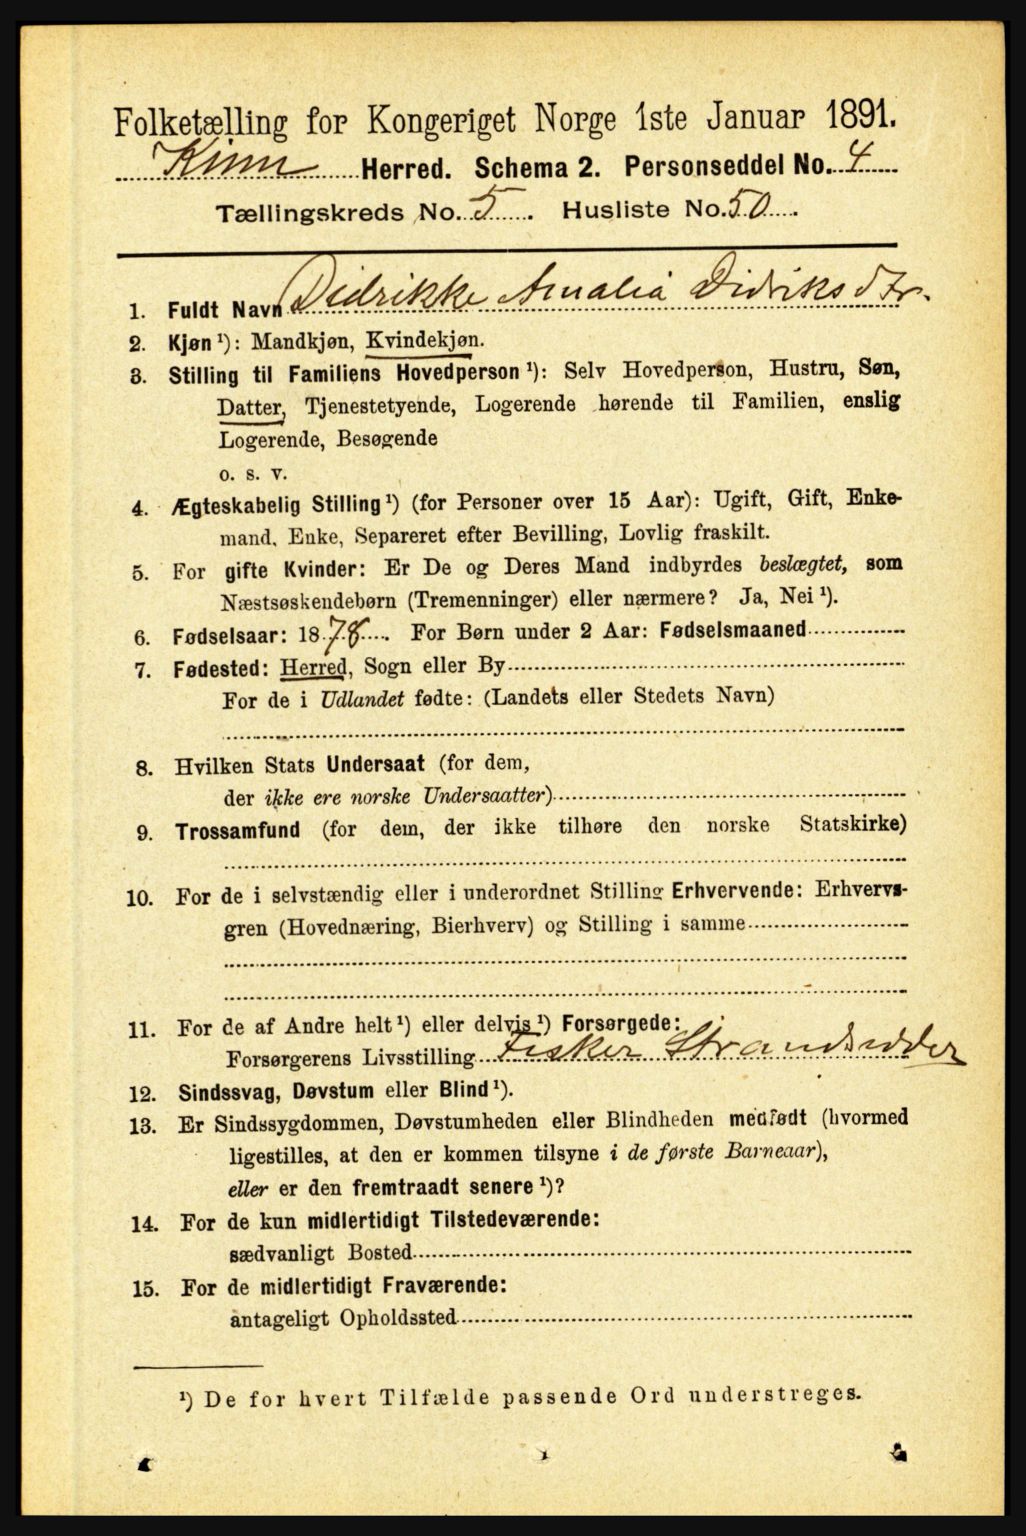 Folketælling for Kongeriget Norge 1ste Januar 1891.
Kinn Herred. Schema 2. Personseddel No. 4
Tællingskreds No. 5. Husliste No. 50.
1. Fuldt Navn Didrikke Amalia Didriksdtr.
2. Kjøn ¹): Mandkjøn, Kvindekjøn.
3. Stilling til Familiens Hovedperson ¹): Selv Hovedperson, Hustru, Søn,
Datter, Tjenestetyende, Logerende hørende til Familien, enslig
Logerende, Besøgende
o. s. v.
4. Ægteskabelig Stilling ¹) (for Personer over 15 Aar): Ugift, Gift, Enke-
mand, Enke, Separeret efter Bevilling, Lovlig fraskilt.
5. For gifte Kvinder: Er De og Deres Mand indbyrdes beslægtet, som
Næstsøskendebørn (Tremenninger) eller nærmere? Ja, Nei ¹).
6. Fødselsaar: 1878. For Børn under 2 Aar: Fødselsmaaned
7. Fødested: Herred, Sogn eller By
For de i Udlandet fødte: (Landets eller Stedets Navn)
8. Hvilken Stats Undersaat (for dem,
der ikke ere norske Undersaatter)
9. Trossamfund (for dem, der ikke tilhøre den norske Statskirke)
10. For de i selvstændig eller i underordnet Stilling Erhvervende: Erhvervs-
gren (Hovednæring, Bierhverv) og Stilling i samme
11. For de af Andre helt ¹) eller delvis ¹) Forsørgede:
Forsørgerens Livsstilling Fisker Strandsidder
12. Sindssvag, Døvstum eller Blind ¹).
13. Er Sindssygdommen, Døvstumheden eller Blindheden medfødt (hvormed
ligestilles, at den er kommen tilsyne i de første Barneaar),
eller er den fremtraadt senere ¹)?
14. For de kun midlertidigt Tilstedeværende:
sædvanligt Bosted
15. For de midlertidigt Fraværende:
antageligt Opholdssted
¹) De for hvert Tilfælde passende Ord understreges.